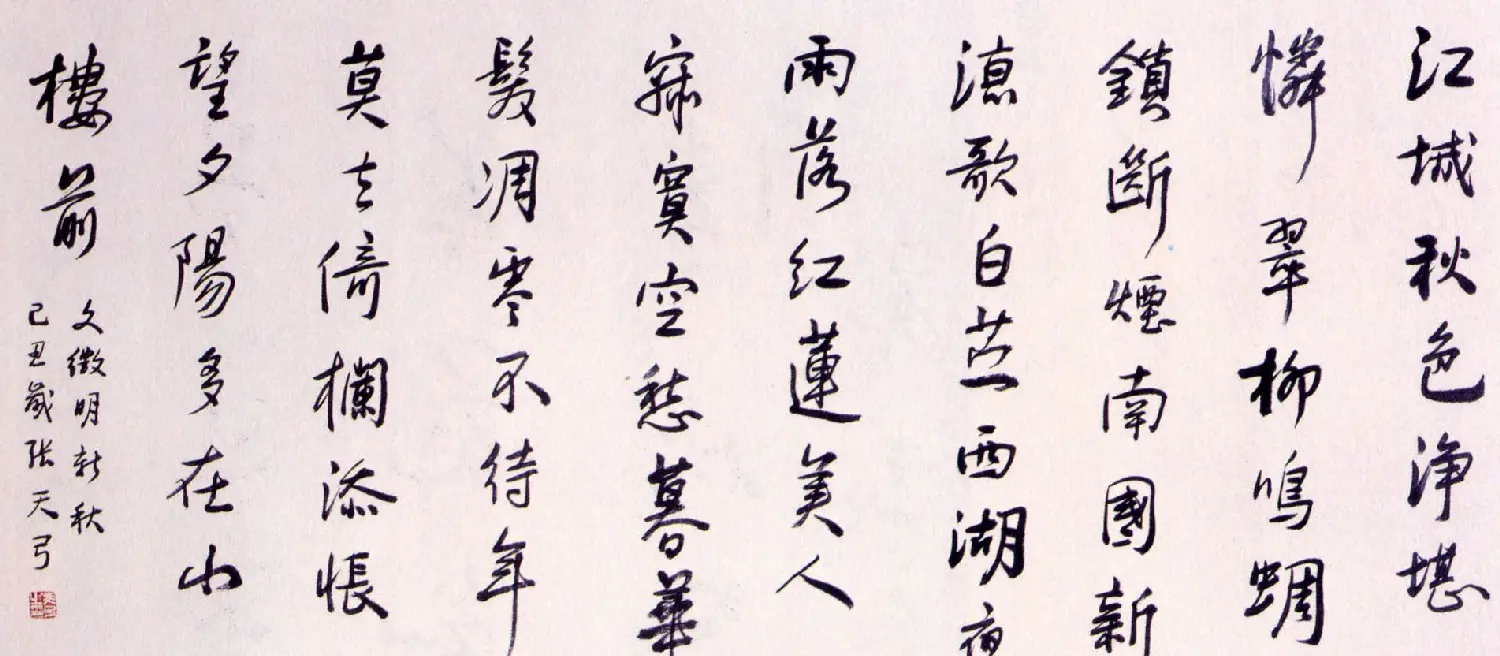 江城秋色净堪
憐翠柳鳴蜩
鎖斷煙南國新
涼歌白苎西湖夜
雨落红蓮美人
寂寞空愁暮華
髮凋零不待年
莫去倚欄添悵
望夕陽多在小
樓前
文徵明新秋
己丑歲张天弓